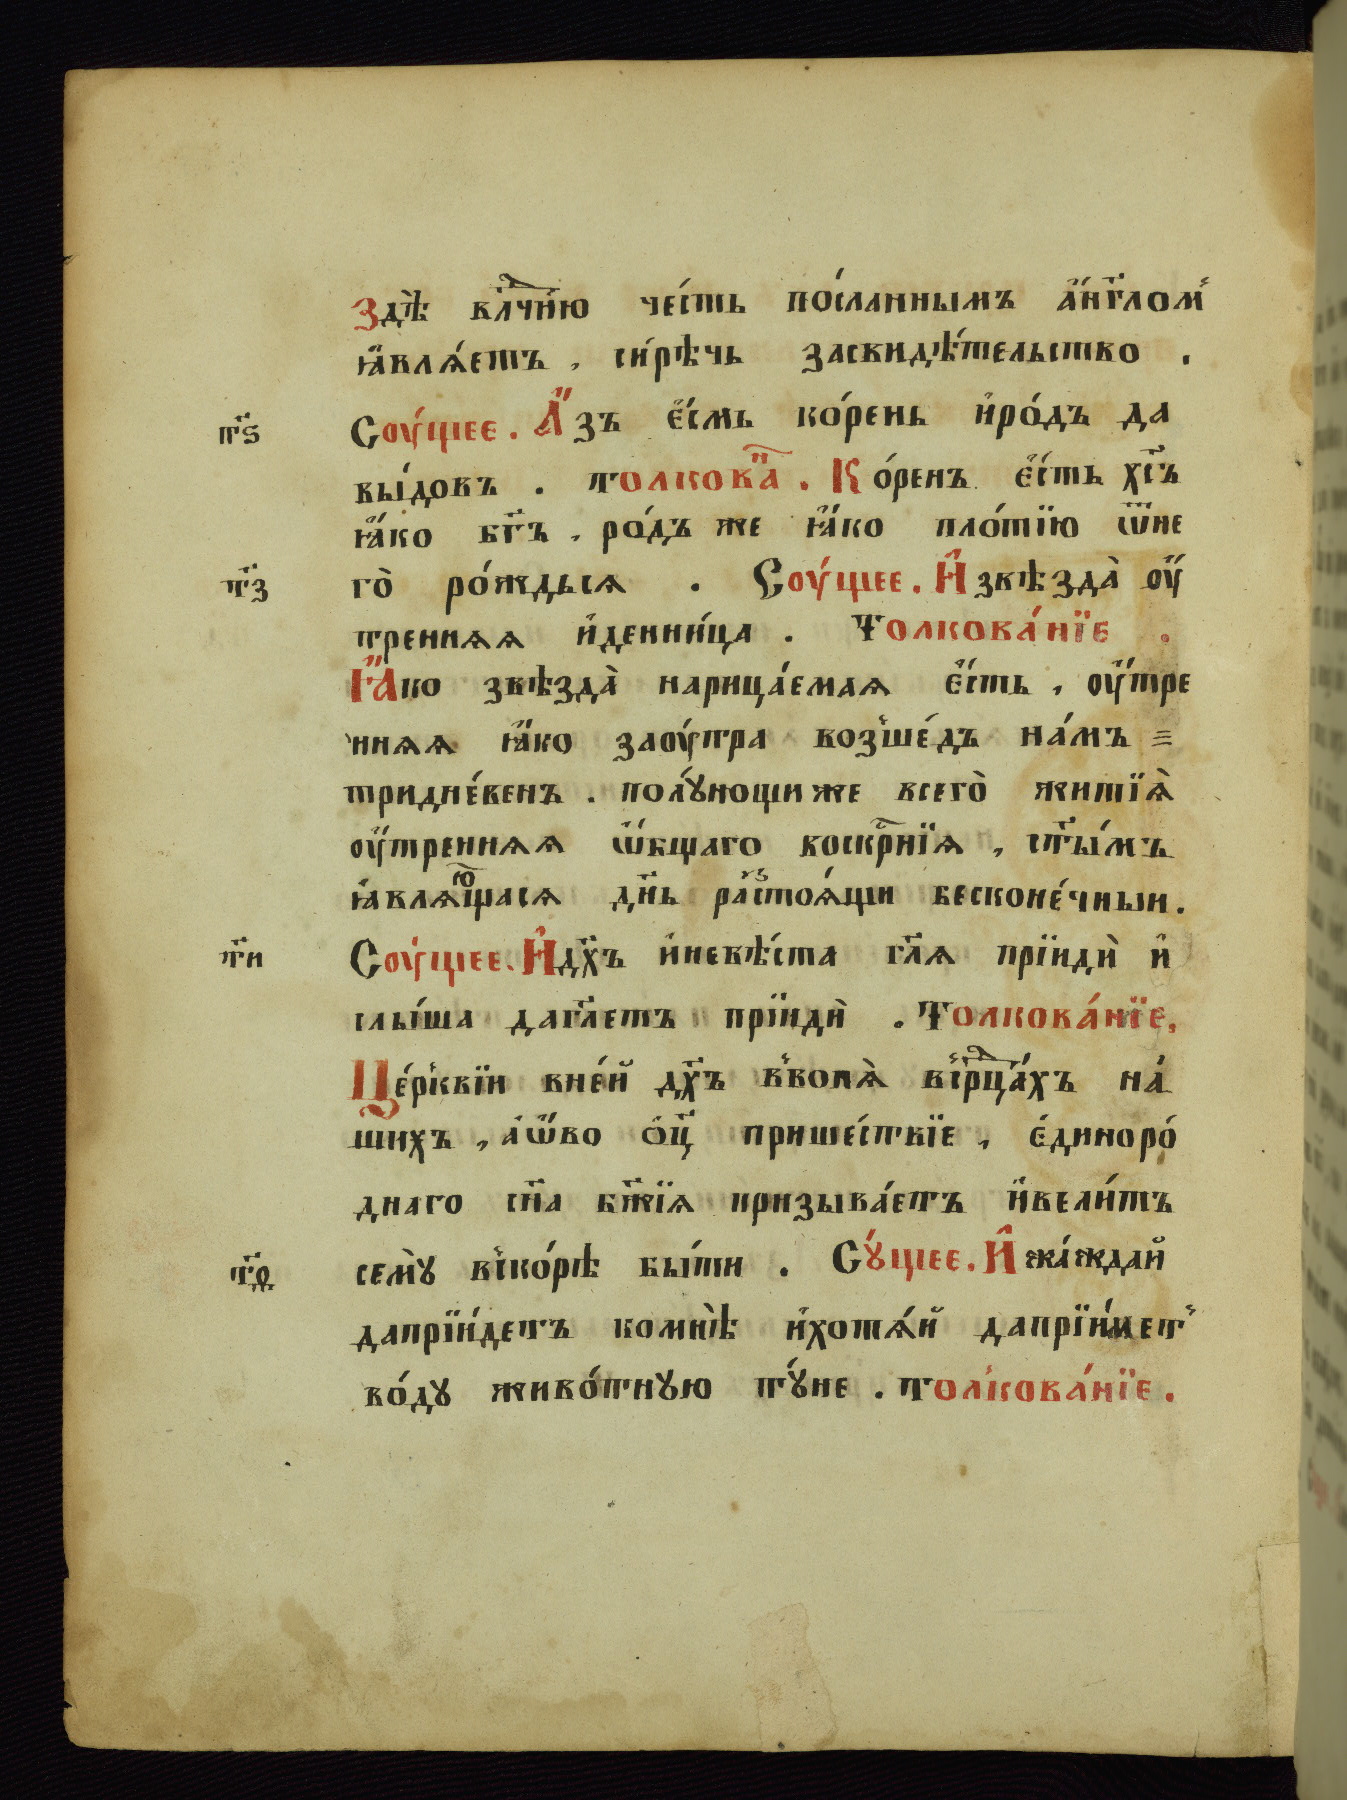 Здѣ̀ влⷣчнюю че́сть по́сланнымъ а҆́нг҃лом̾
ꙗ҆влѧ́етъ , си́рѣчь засвидѣ́тельство .
т҃ѕ Соу́щее . А҆́зъ є҆́смь ко́рень и҆ро́дъ да
вы́довъ . толкова́ . Ко́ренъ є҆́сть хс҃ъ
ꙗ҆́ко бг҃ъ , ро́дъ же ꙗ҆́ко пло́тїю ѿне
т҃з го̀ ро́ждьсѧ . Соу́щее . И҆звѣзда̀ оу҆́
треннѧѧ и҆денни́ца . Толкова́нїе .
Ꙗ҆́ко звѣзда̀ нарица́емаѧ є҆́сть , оу҆́тре
ннѧѧ ꙗ҆́ко заоу́тра возше́дъ на́мъ
тридне́венъ . полꙋ́нощи же всего̀ житїѧ̀
оу҆́треннѧѧ ѡ҆́бщаго воскрⷭ҇нїѧ , ст҃ы́мъ
ꙗ҆влѧ́ющасѧ дн҃ь ра́стоѧ́щи бесконе́чныи .
т҃и Соу́щее . И҆дх҃ъ и҆невѣ́ста гл҃ѧ прїидѝ и҆
слы́ша даглⷢ҇етъ прїидѝ . Толкова́нїе ,
Це́рквїи вне́й дх҃ъ вволѧ̀ всрⷣца́хъ на́
шихъ , а҆́ѡ҆во ѻ҆ц҃ъ прише́ствїе , є҆диноро́
днаго сн҃а бж҃їѧ призыва́етъ и҆вели́тъ
т҃ѳ семꙋ̀ вско́рѣ бы́ти . Сꙋ́щее . И҆ жа́ждай
даприї́детъ комнѣ̀ и҆хотѧ́й даприї́мет̾
во́дꙋ живо́тнꙋю тꙋ́не . толкова́нїе .